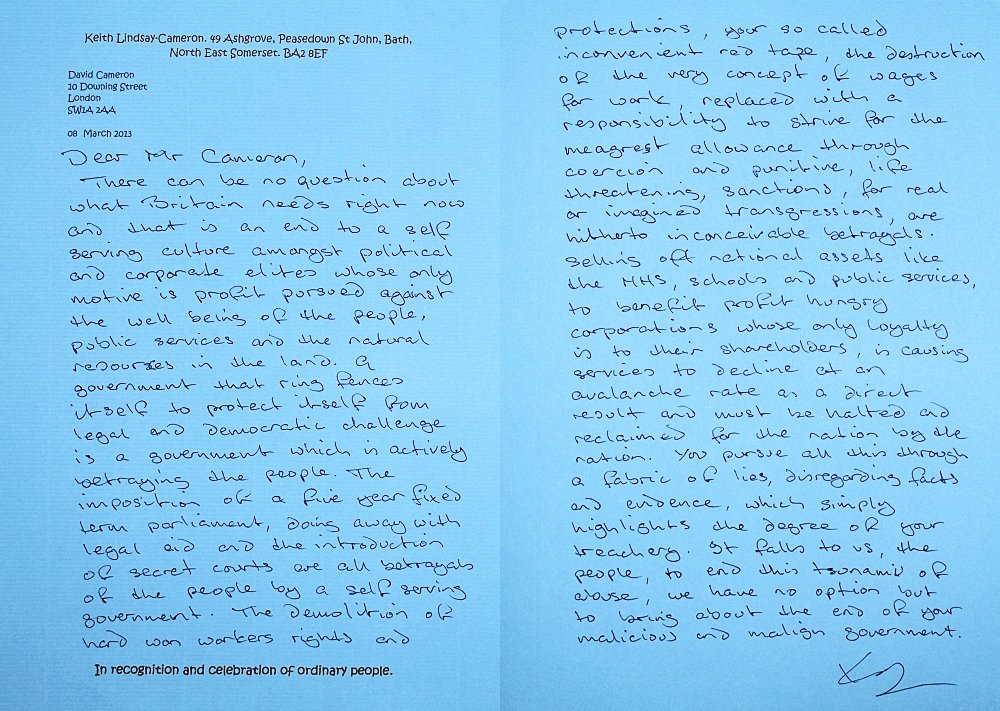 Keith Lindsay-Cameron. 49 Ashgrove, Peasedown St John, Bath,
North East Somerset. BA2 8EF
David Cameron
10 Downing Street
London
SW1A 2AA
08 March 2013
Dear Mr Cameron,
There can be no question about
what Britain needs right now
and that is an end to a self
serving culture amongst political
and corporate elites whose only
motive is profit pursued against
the well being of the people,
public services and the natural
resources in the land. A
government that ring fences
itself to protect itself from
legal and democratic challenge
is a government which is actively
betraying the people. The
imposition of a five year fixed
term parliament, doing away with
legal aid and the introduction
of secret courts are all betrayals
of the people by a self serving
government. The demolition of
hard won workers rights and
In recognition and celebration of ordinary people.
protections, your so called
inconvenient red tape, the destruction
of the very concept of wages
for work, replaced with a
responsibility to strive for the
meagrest allowance through
coercion and punitive, life
threatening, sanctions, for real
or imagined transgressions, are
hitherto inconceivable betrayals.
Selling off national assets like
the NHS, schools and public services,
to benefit profit hungry
corporations whose only loyalty
is to their shareholders, is causing
services to decline at an
avalanche rate as a direct
result and must be halted and
reclaimed for the nation by the
nation. You pursue all this through
a fabric of lies, disregarding facts
and evidence, which simply
highlights the degree of your
treachery. It falls to us, the
people, to end this tsunami of
abuse, we have no option but
to bring about the end of your
malicious and malign government.